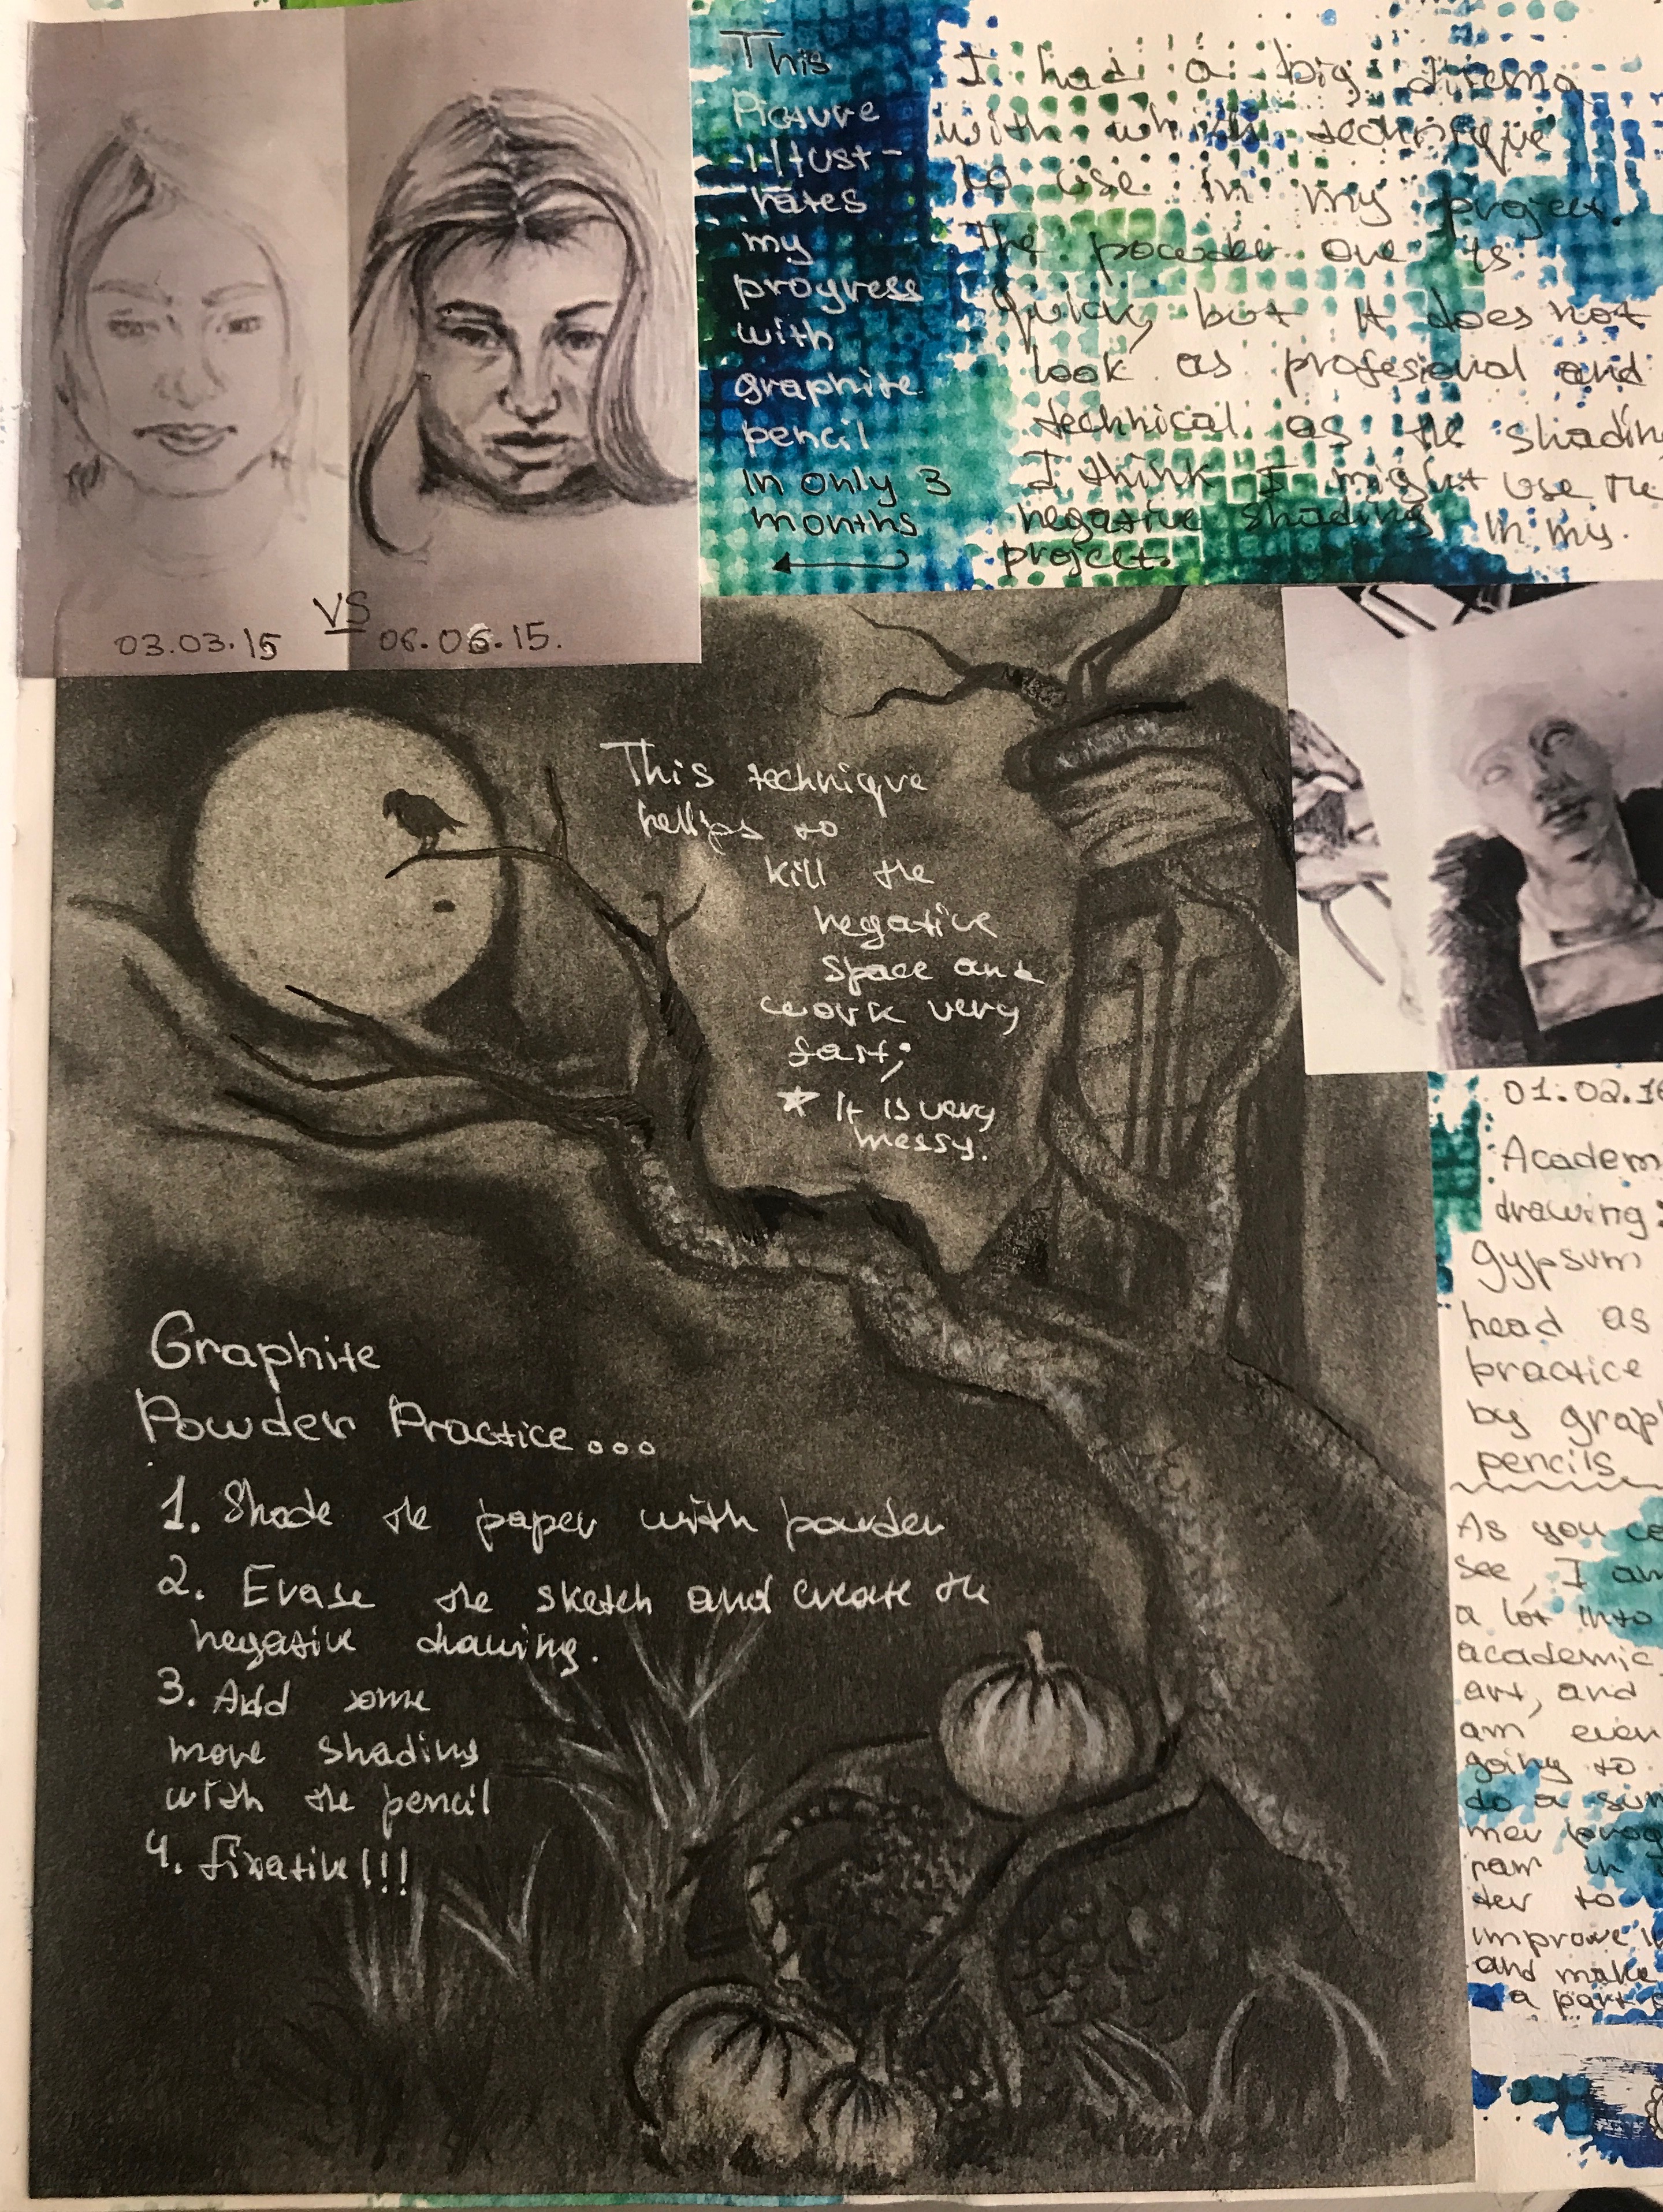 This
Picture
Illust-
rates
my
progress
with
graphite
pencil
in only 3
months
I had a big
with which technique
to use in my project.
The powder one is
quick, but it does not
look as profesional and
technical as the shading
I think I might use the
negative shading in my
project.
VS
03.03.15
06.06.15.
This technique
hellps to
kill the
negative
space and
work very
fast;
* It is very
messy.
Graphite
Powder Practice...
1. Shade the paper with powder
2. Erase the sketch and create the
negative drawing.
3. Add some
more shading
with the pencil
4. fixative!!!
01.02.16
Academ
drawing:
gypsum
head as
practice
by grap
pencils.
As you c
see, I am
a lot into
academic
art, and
am even
going to
do a sum
mer prog
ram in
ter to
improve i
and make
a part